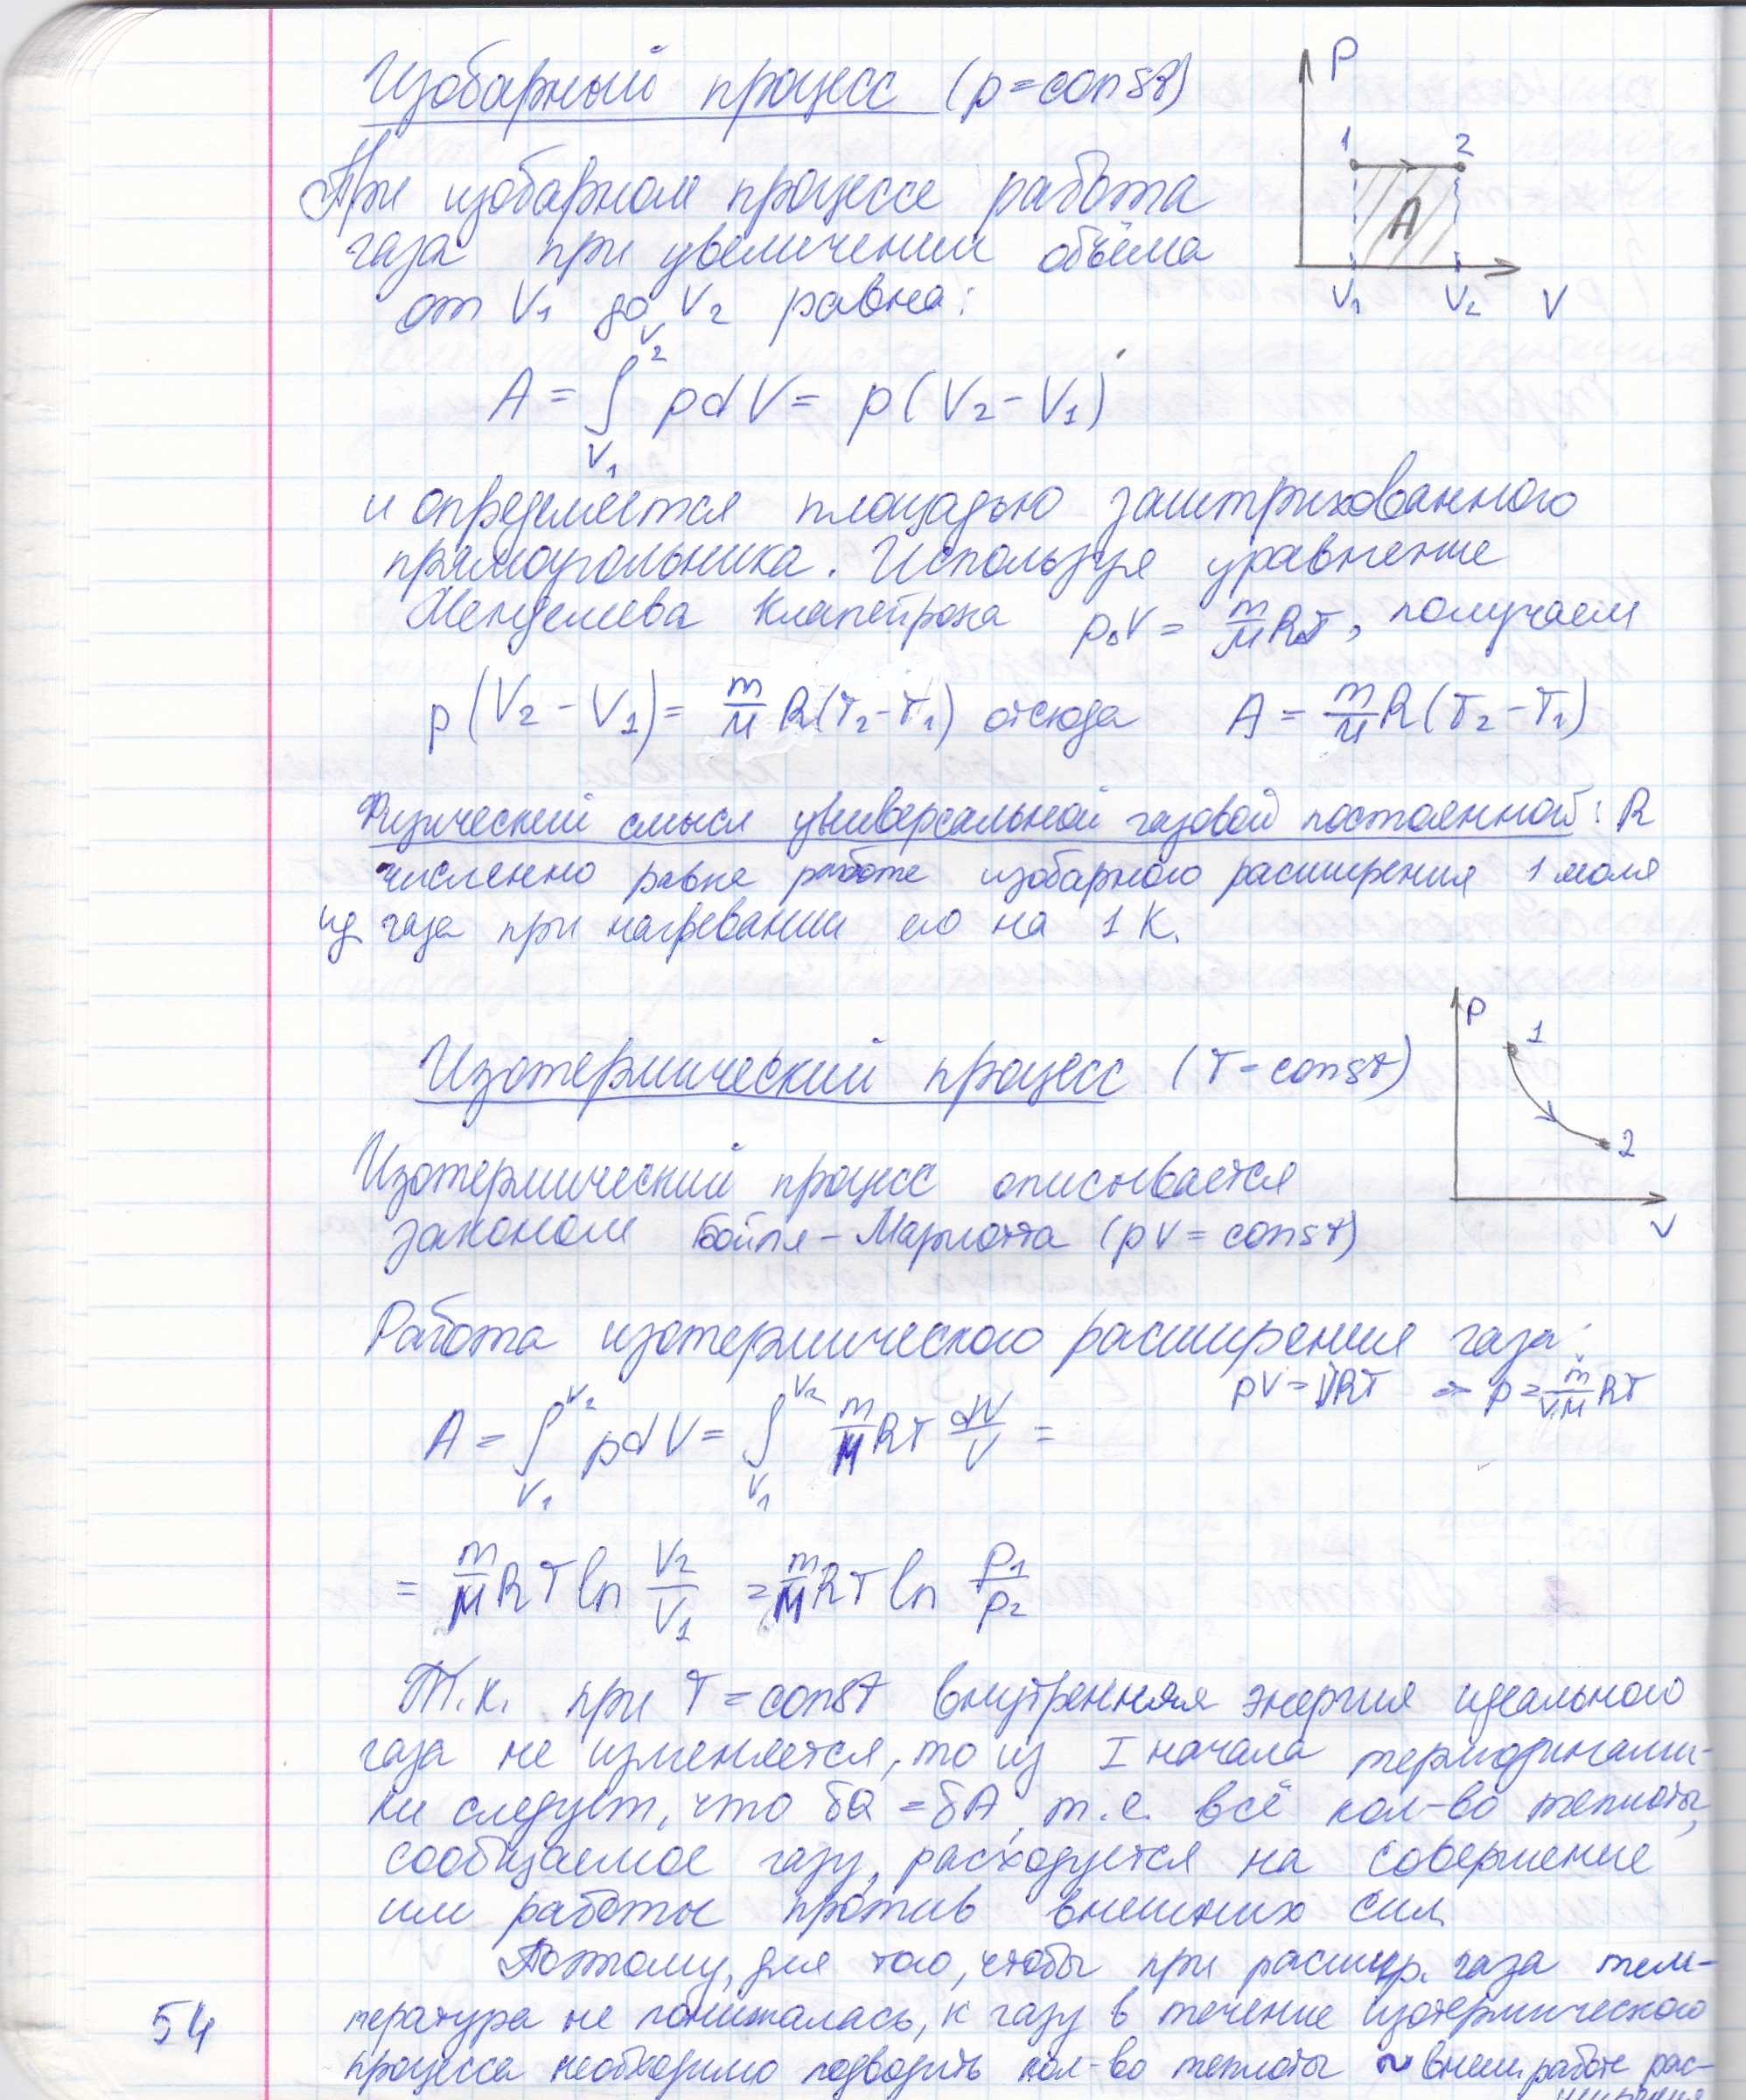 Изобарный процесс (p=const)
P
1 2
A
V₁ V₂ V
При изобарном процессе работа
газа при увеличении объёма
от V₁ до V₂ равна:
A = ∫_{V₁}^{V₂} p dV = p(V₂ - V₁)
и определяется площадью заштрихованного
прямоугольника. Используя уравнение
Менделеева Клапейрона p₀V = m/M RT, получаем
p(V₂ - V₁) = m/M R(T₂-T₁) отсюда A = m/M R(T₂-T₁)
Физический смысл универсальной газовой постоянной: R
численно равна работе изобарного расширения 1 моля
ид газа при нагревании его на 1 К.
P
1
2
V
Изотермический процесс (T-const)
Изотермический процесс описывается
законом Бойля-Мариотта (pV = const)
Работа изотермического расширения газа:
pV = νRT ⇒ p = m/VM RT
A = ∫_{V₁}^{V₂} p dV = ∫_{V₁}^{V₂} m/M RT dV/V =
= m/M RT ln V₂/V₁ = m/M RT ln p₁/p₂
Т.к. при T = const внутренняя энергия идеального
газа не изменяется, то из I начала термодинами-
ки следует, что δQ = δA, т.е. всё кол-во теплоты,
сообщаемое газу, расходуется на совершение
им работы против внешних сил
Поэтому, для того, чтобы при расшир. газа тем-
пература не понижалась, к газу в течение изотермического
процесса необходимо подводить кол-во теплоты ~ внеш работе рас-
ширения
54